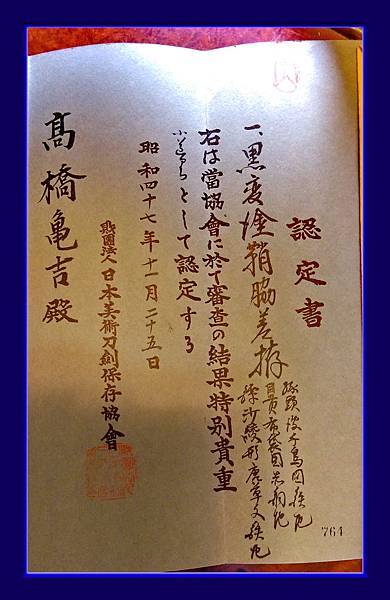 認定書
一、黒変塗鞘脇差拵
縁頭波千鳥図鉄地
目貫布袋図赤銅地
鐔沙綾形唐草文鉄地
右は當協會に於て審査の結果特別貴重
小道具として認定する
昭和四十七年十一月二十五日
財團法人日本美術刀劍保存協會
髙橋亀吉殿
764